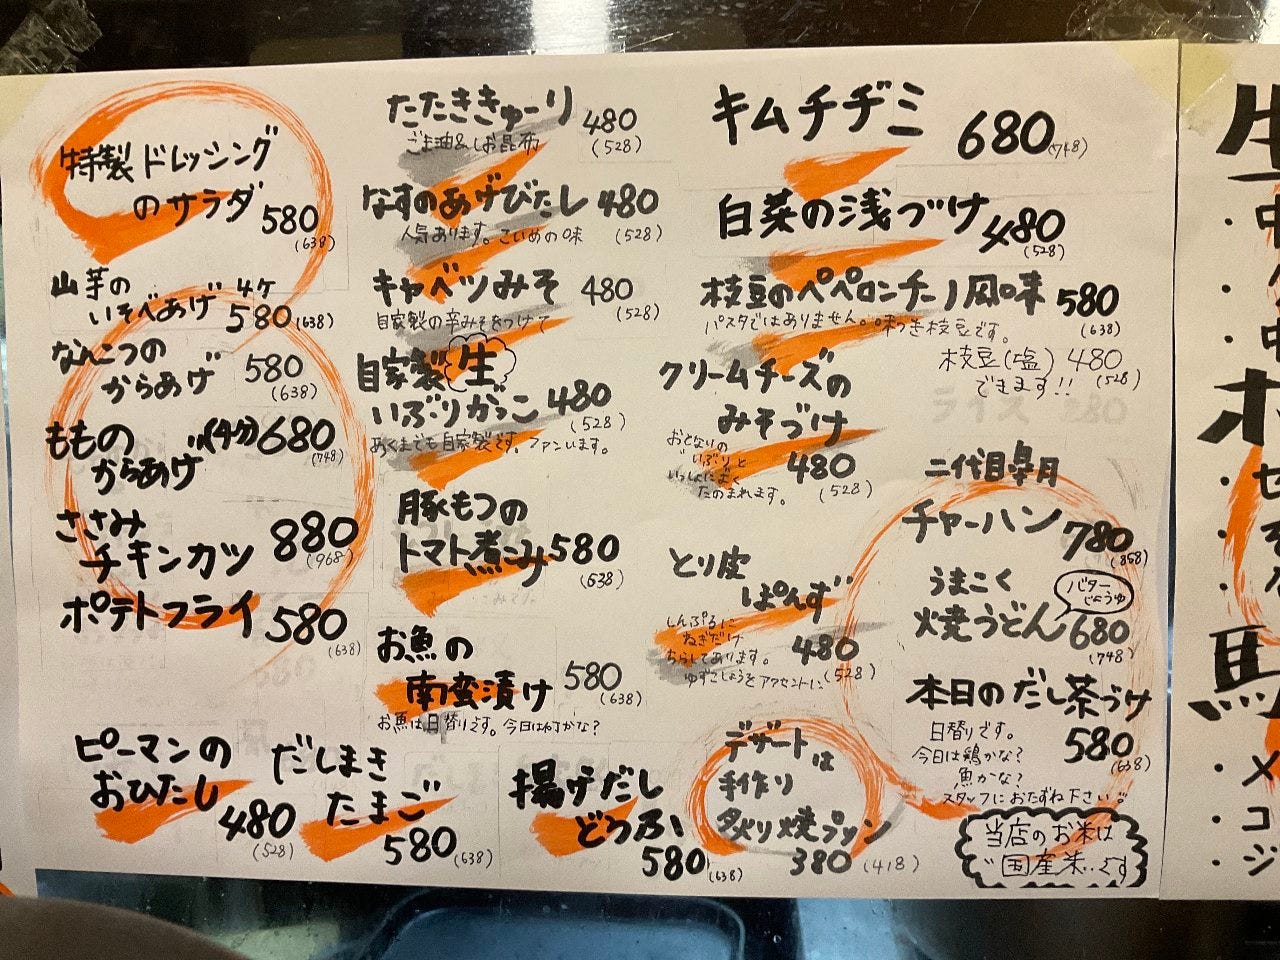 特製ドレッシング
のサラダ 580
(638)
山芋の
いそべあげ 4ケ
580(638)
なんこつの
からあげ 580
(638)
ももの
からあげ (4ケ) 680
(748)
ささみ
チキンカツ 880
(968)
ポテトフライ 580
(638)
ピーマンの
おひたし
480
(528)
だしまき
たまご
580(638)
たたききゅーり 480
ごま油&しお昆布 (528)
なすのあげびたし 480
人気あります。こいめの味 (528)
キャベツみそ 480
自家製の辛みそをつけて (528)
自家製 生
いぶりがっこ 480
(528)
あくまでも自家製です。ファンいます。
豚もつの
トマト煮こみ 580
(638)
お魚の
南蛮漬け 580
(638)
お魚は日替りです。今日は何かな?
揚げだし
どうふ
580(638)
キムチヂミ 680(748)
白菜の浅づけ 480
(528)
枝豆のペペロンチーノ風味 580
パスタではありません。味つき枝豆です。 (638)
枝豆(塩) 480
できます!! (528)
クリームチーズの
みそづけ
480
(528)
おとなりの
"いぶり"と
いっしょによく
たのまれます。
とり皮
ぽんず
480
(528)
しんぷるに
ねぎだけ
ちらしてあります。
ゆずこしょうをアクセントに
デザートは
手作り
炙り焼プリン
380(418)
二代目皐月
チャーハン 780
(858)
うまこく
焼うどん バター
じょうゆ
680
(748)
本日のだし茶づけ
580
(638)
日替りです。
今日は鶏かな?
魚かな?
スタッフにおたずね下さい。
当店のお米は
"国産米"です
生
・中
馬
・メ
・コ
・ジ